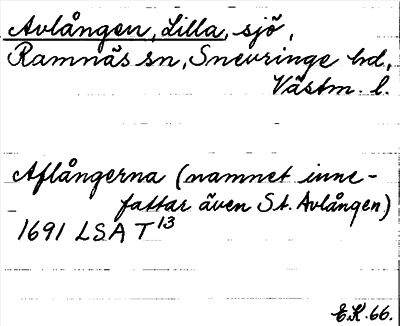 Avlången, Lilla, sjö,
Ramnäs sn, Snevringe hd,
Västm. l.
Aflångerna (namnet inne-
fattar även St. Avlången)
1691 LSA T 13
E.K. 66.